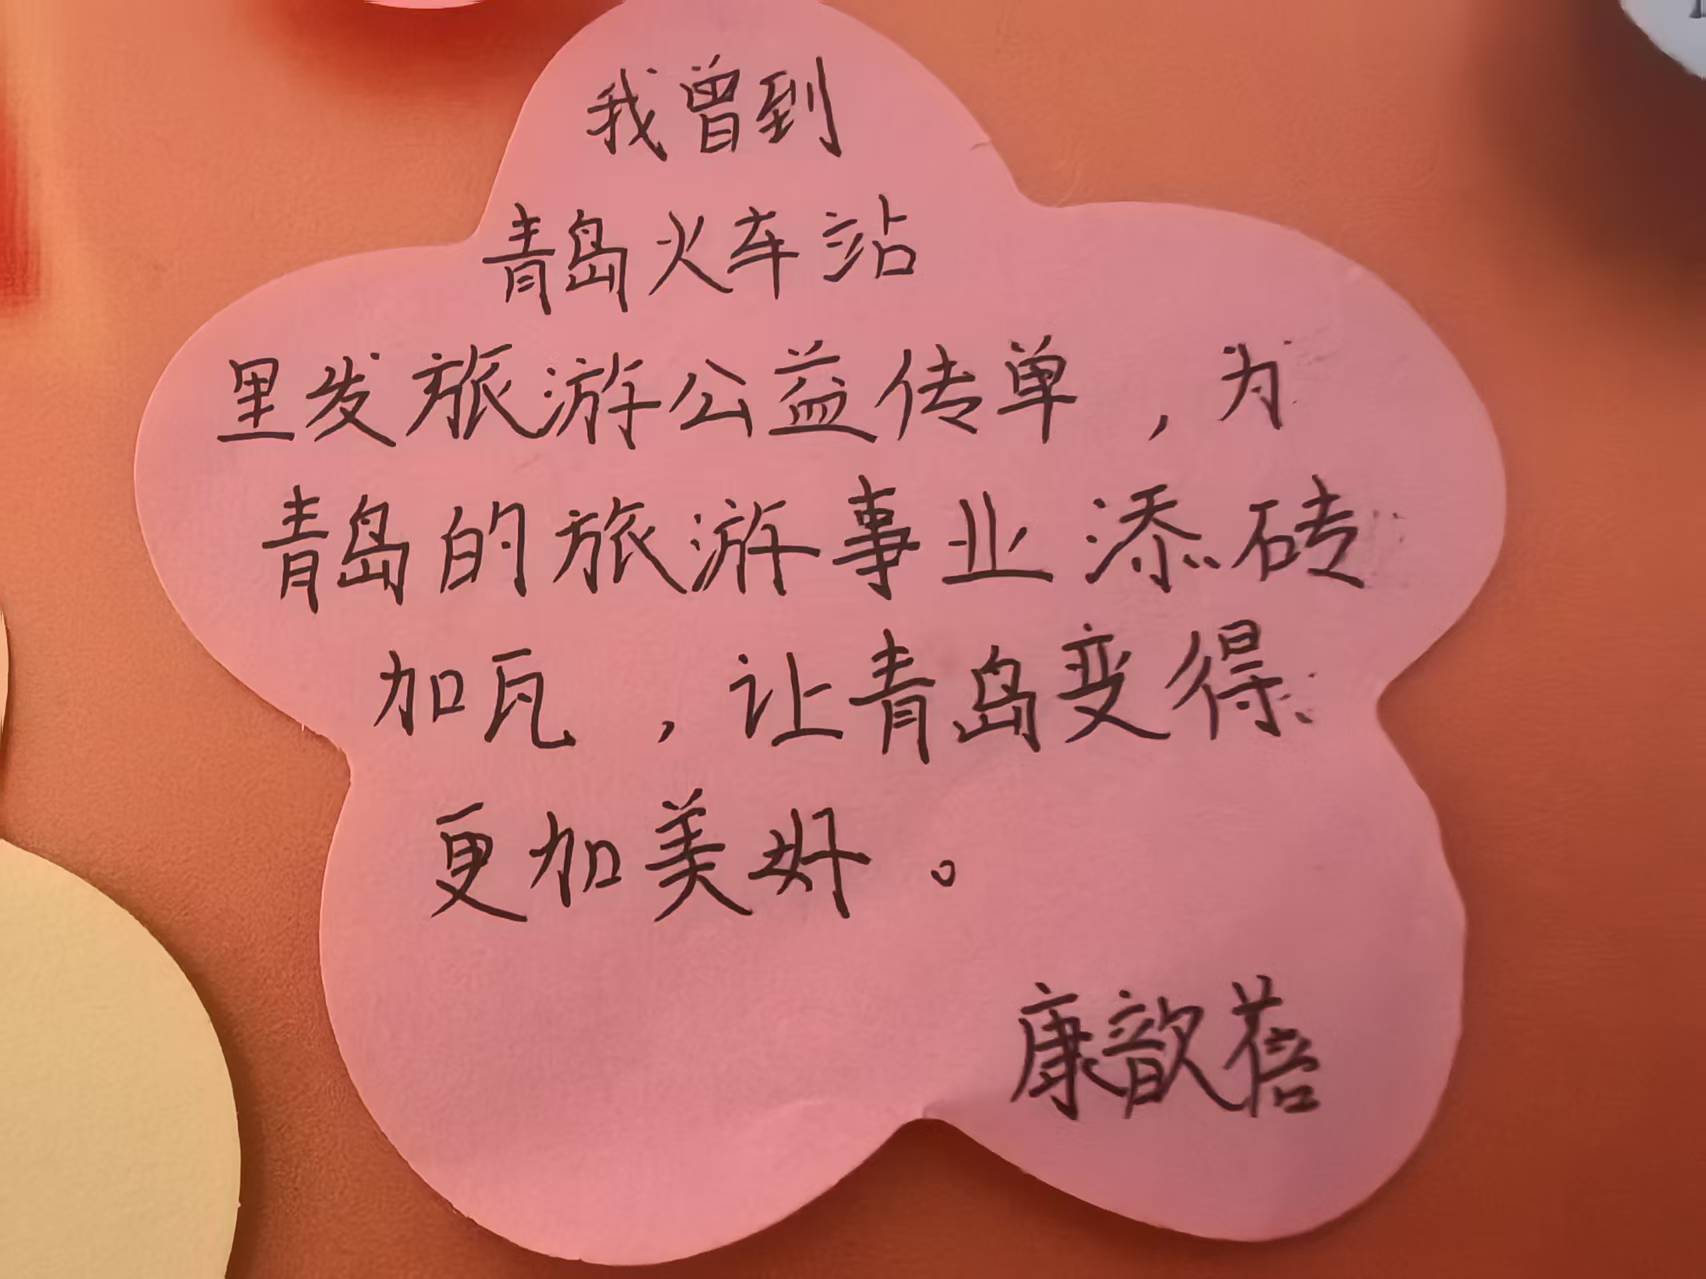 我曾到
青岛火车站
里发旅游公益传单，为
青岛的旅游事业添砖
加瓦，让青岛变得
更加美好。
康歆蓓